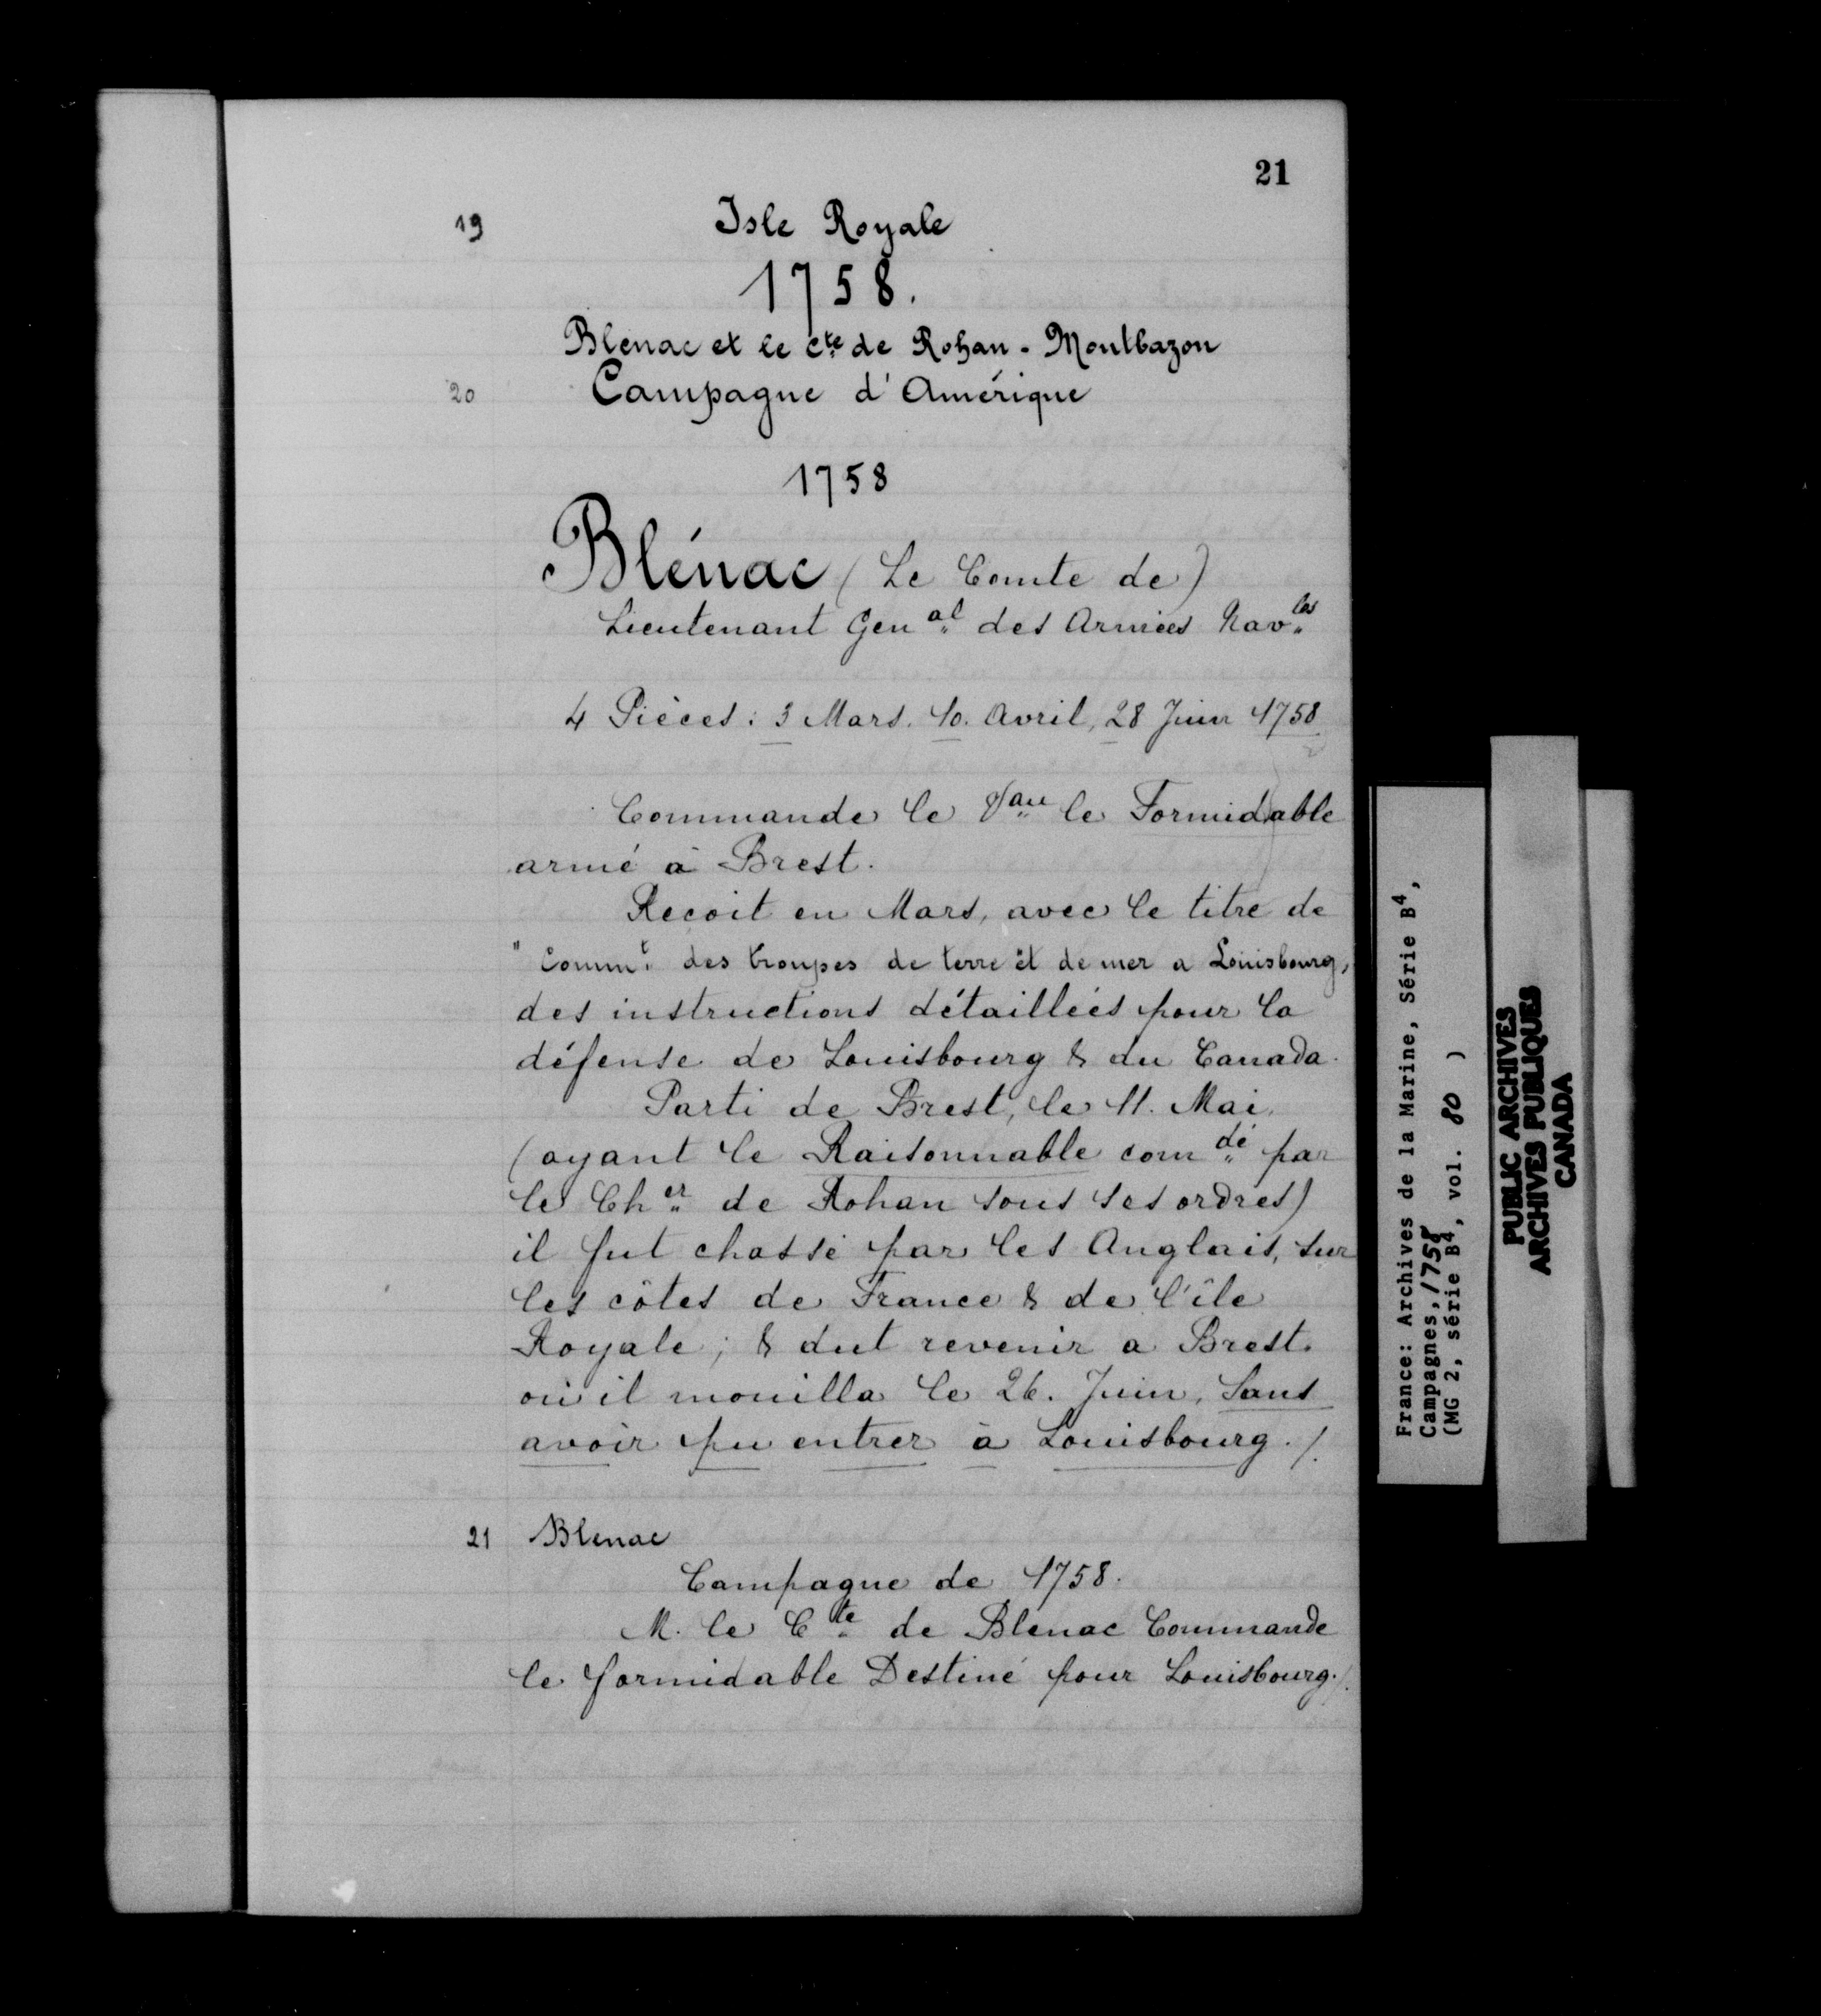 21
19 Isle Royale
1758.
Blenac et le cte de Rohan-Montbazon
20 Campagne d'Amérique
1758
Blénac (Le Comte de)
Lieutenant Genal des Armées Navles
4 Pièces : 3 Mars. 10. Avril, 28 Juin 1758
Commande le Vau le Formidable
armé à Brest.
Recoit en Mars, avec le titre de
" Commt des troupes de terre et de mer a Louisbourg,
des instructions détaillées pour la
défense de Louisbourg & du Canada.
Parti de Brest, le 11. Mai.
(ayant le Raisonnable comdé par
le Cher de Rohan sous ses ordres)
il fut chassé par les Anglais, sur
les côtes de France & de l'île
Royale ; & dut revenir a Brest.
où il mouilla le 26. Juin, sans
avoir pu entrer à Louisbourg ./.
21 Blenac
Campagne de 1758.
M. le Cte de Blenac Commande
le formidable Destiné pour Louisbourg./.
France: Archives de la Marine, Série B4,
Campagnes, 1758
(MG 2, série B4, vol. 80 )
PUBLIC ARCHIVES
ARCHIVES PUBLIQUES
CANADA